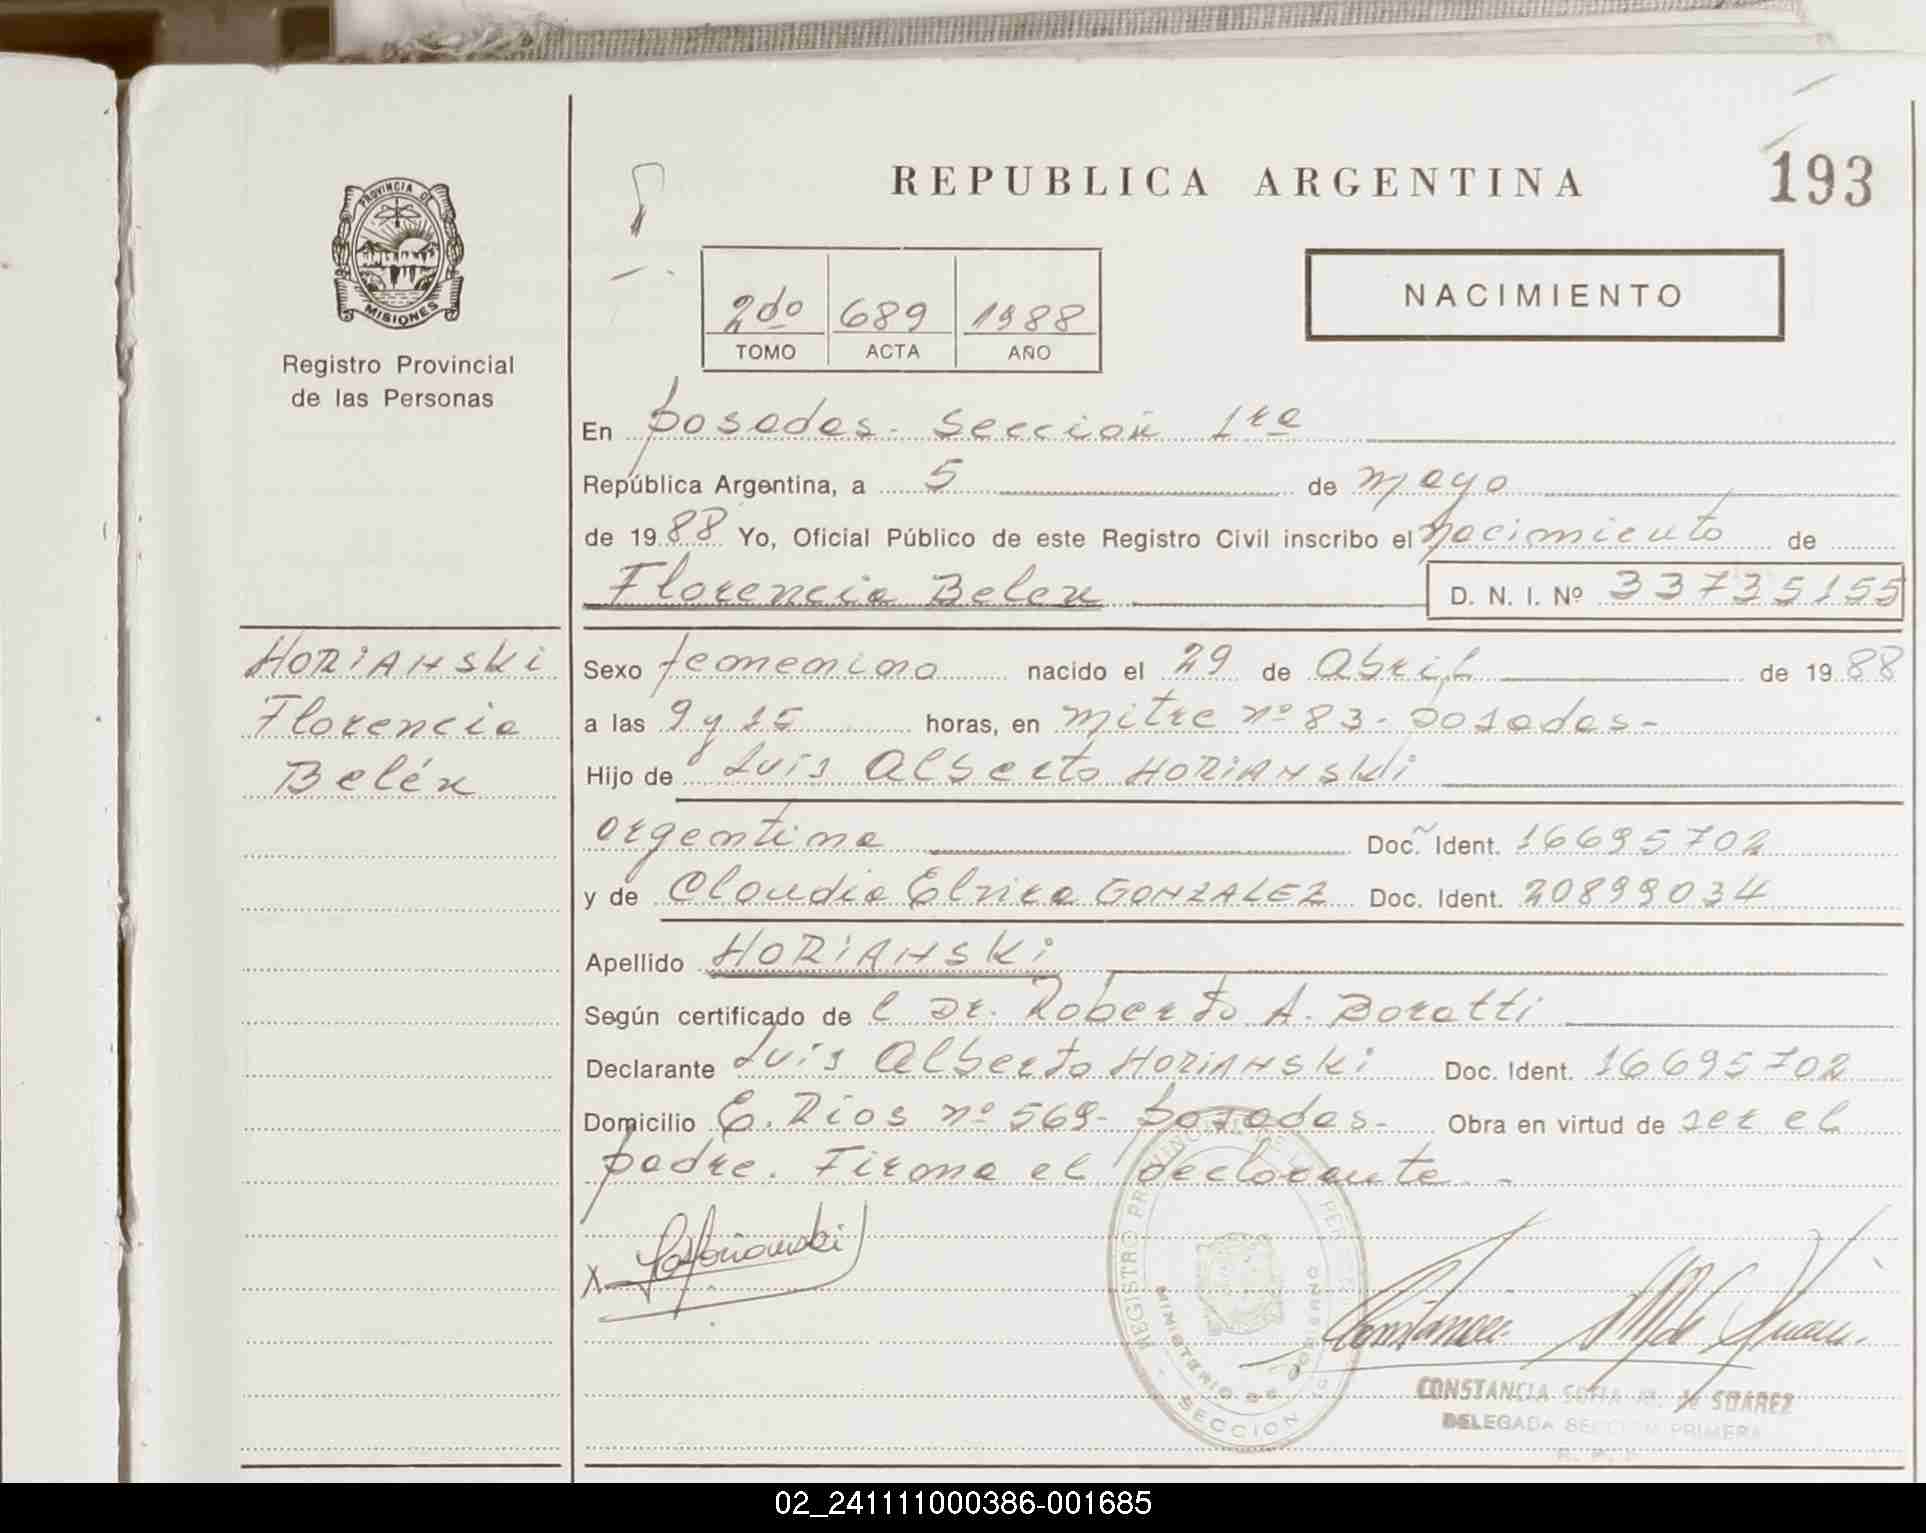 REPUBLICA ARGENTINA
193
PROVINCIA DE
MISIONES
Registro Provincial
de las Personas
2do 689 1988
TOMO ACTA AÑO
NACIMIENTO
En Posadas - Sección 1ra
República Argentina, a 5 de mayo
de 1988 Yo, Oficial Público de este Registro Civil inscribo el nacimiento de
Florencia Belen D. N. I. Nº 33735155
HORIANSKI
Florencia
Belén
Sexo femenino nacido el 29 de Abril de 1988
a las 9 y 15 horas, en mitre nº 83 - Posadas -
Hijo de Luis Alberto HORIANSKI
argentina Doc. Ident. 16695702
y de Claudia Elvira GONZALEZ Doc. Ident. 20899034
Apellido HORIANSKI
Según certificado de l Dr. Roberto A. Boratti
Declarante Luis Alberto HORIANSKI Doc. Ident. 16695702
Domicilio E. Rios nº 569 - Posadas - Obra en virtud de ser el
padre. Firma el declarante. -
REGISTRO PROVINCIAL DE LAS PER
MINISTERIO DE GOBIERNO
SECCION
CONSTANCIA SOFIA M. de SUAREZ
DELEGADA SECCION PRIMERA
02_241111000386-001685